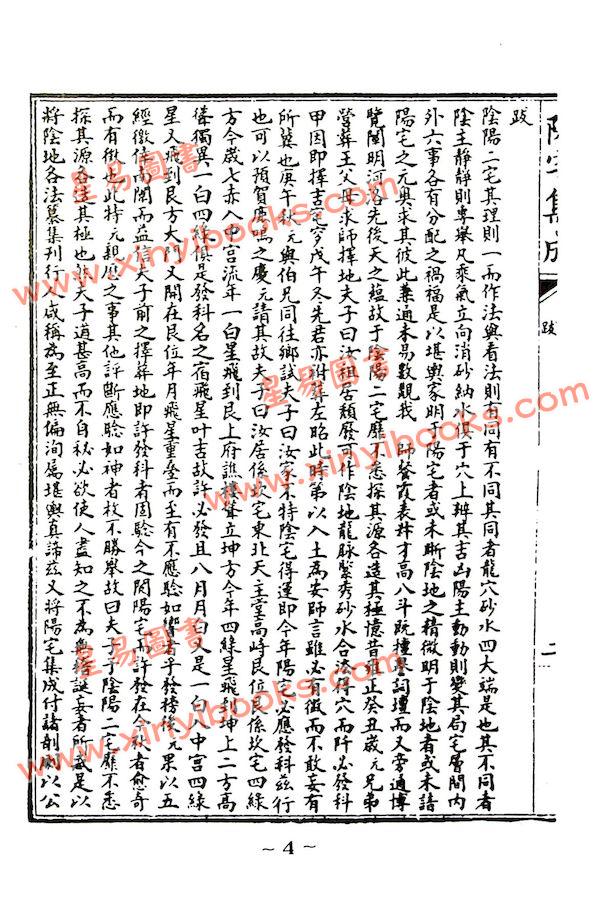 跋
陰陽二宅其理則一而作法與看法則有同有不同其同者龍穴砂水四大端是也其不同者
陰主靜靜則專舉凡乘氣立向消砂納水俱于穴上辨其吉凶陽主動動則變其局宅層間內
外六事各有分配之禍福是以堪輿家明于陽宅者或未晰陰地之精微明于陰地者或未諳
陽宅之元奧求其彼此兼通未易數覯我 師餐霞表姊丈才高八斗既擅詞壇而又旁通博
覽闡明河洛先後天之蘊故于陰陽二宅靡不悉探其源各造其極憶昔雍正癸丑歲元兄弟
營葬王父母求師擇地夫子曰汝祖居頹廢可作陰地龍脉緊秀砂水合法得穴而阡必發科
甲因即擇吉定穸戊午冬先君亦附葬左昭此時第以入土為安師言雖必有徵而不敢妄有
所冀也庚午秋元與伯兄同往鄉試夫子曰汝家不特陰宅得運即今年陽宅必應發科茲行
也可以預賀鹿鳴之慶元請其故夫子曰汝居係坎宅東北天主堂高峙艮位艮係坎宅四綠
方今歲七赤入中宮流年一白星飛到艮上府譙樓聳立坤方今年四綠星飛到坤上二方高
聳獨異一白四綠俱是發科名之宿飛星叶吉故許必發且八月月白又是一白入中宮四綠
星又飛到艮方大門又開在艮位年月飛星重叠而至有不應騐如響者乎發榜後元果以五
經徼倖南闈而益信夫子前之擇葬地即許發科者固騐今之閱陽宅而許發在今秋者愈奇
而有徵也此特元親歷之事其他評斷應騐如神者枚不勝舉故曰夫子于陰陽二宅靡不悉
探其源各造其極也然夫子道甚高而不自秘必欲使人盡知之不為無稽誕妄者所惑是以
將陰地各法纂集刊行人咸稱為至正無偏洵屬堪輿真諦茲又將陽宅集成付諸剞劂以公
陽宅集成
跋
二
星易圖書
www.xinyibooks.com
星易圖書
www.xinyibooks.com
星易圖書
www.xinyibooks.com
~ 4 ~